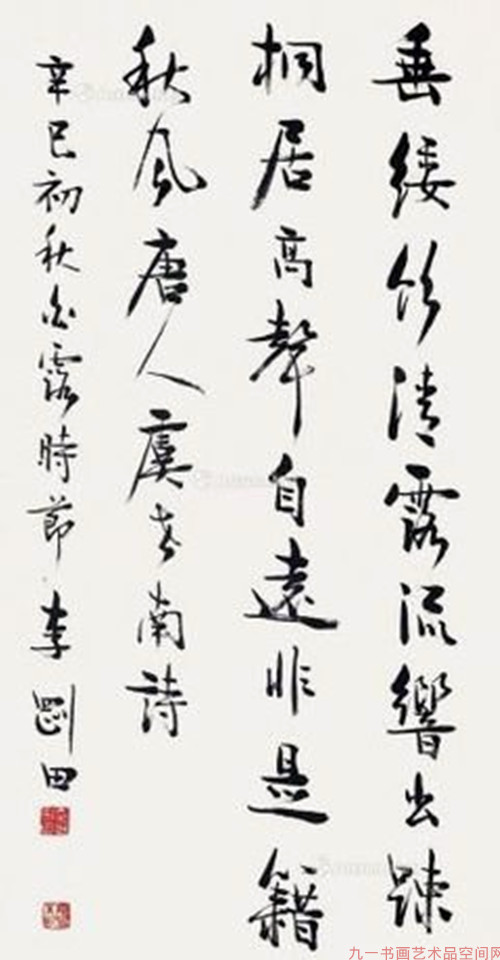 垂緌飲清露流響出踈
桐居高聲自遠非是籍
秋風唐人虞世南詩
辛巳初秋白露時節李剛田
九一书画艺术品空间网